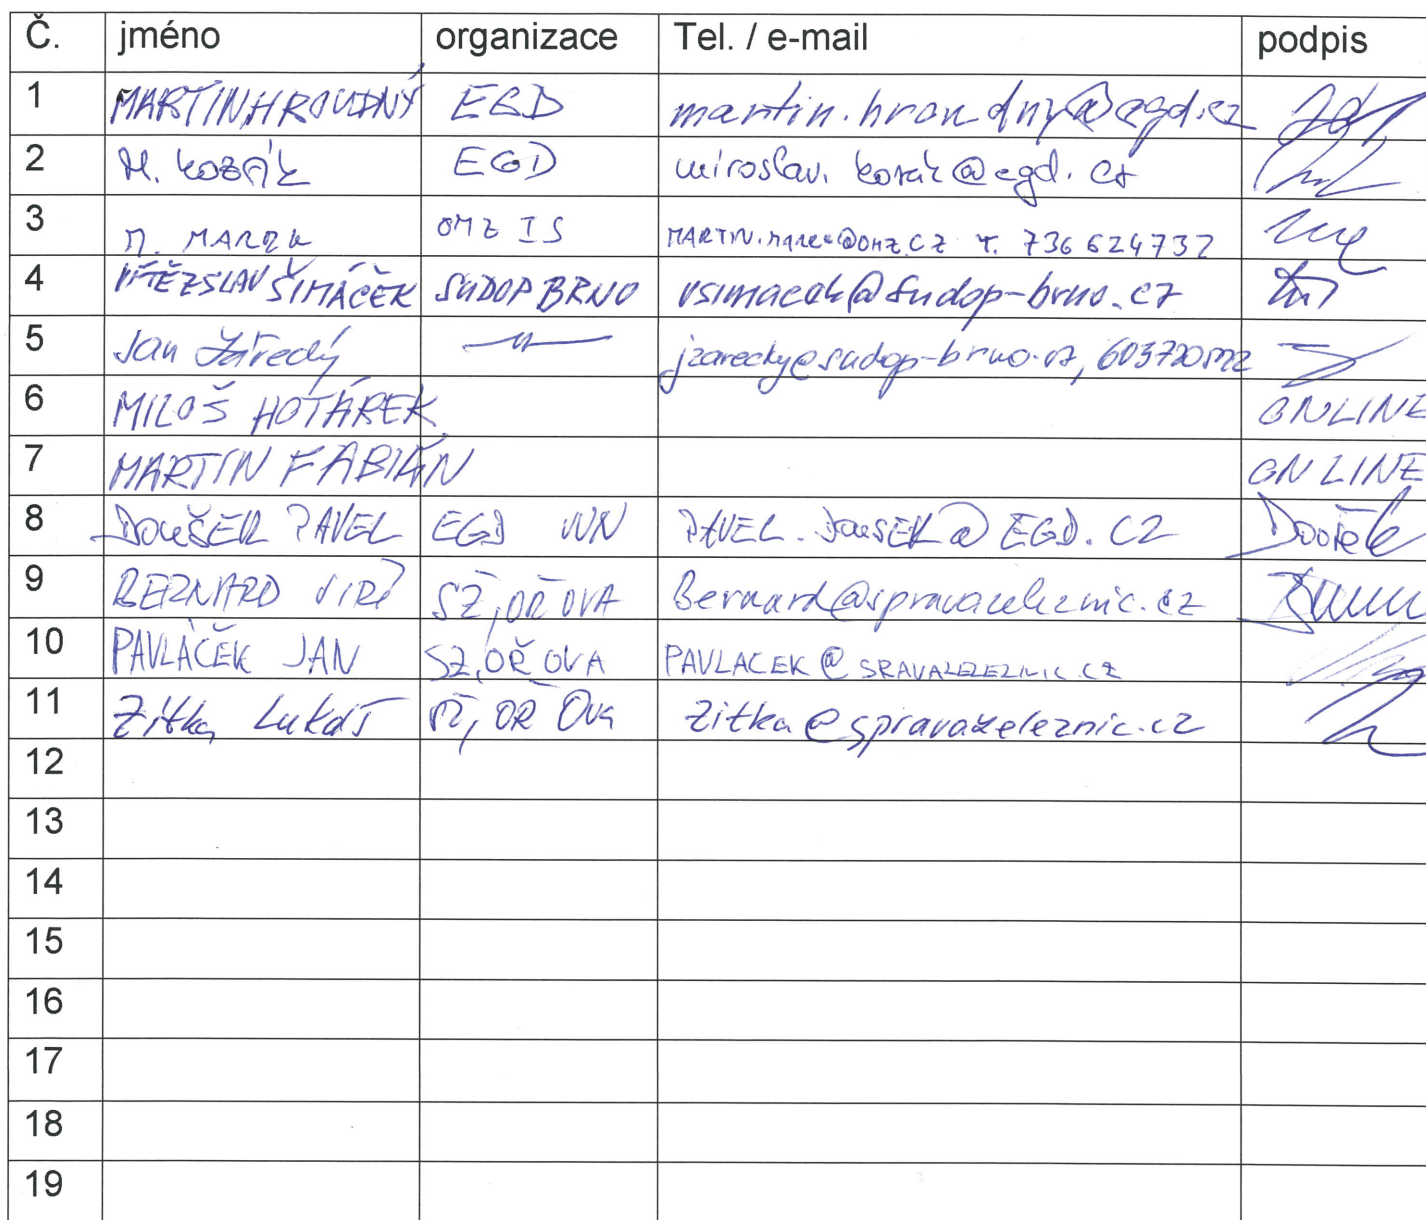 Č. jméno organizace Tel. / e-mail podpis
1 MARTIN HROUDNÝ EGD martin.hroudny@egd.cz
2 M. KOZÁK EGD miroslav.kozak@egd.cz
3 M. MAREK OMZ IS MARTIN.MAREK@OMZ.CZ T. 736 624732
4 VÍTĚZSLAV ŠIMÁČEK SUDOP BRNO vsimacek@sudop-brno.cz
5 Jan Zářecký —"— jzarecky@sudop-brno.cz,
6 MILOŠ HOTÁREK ONLINE
7 MARTIN FABIÁN ONLINE
8 DOUŠEK PAVEL EGD VVN PAVEL.DOUSEK@EGD.CZ
9 BERNARD JIŘÍ SŽ, OŘ OVA Bernard@spravazeleznic.cz
10 PAVLÁČEK JAN SŽ, OŘ OVA PAVLACEK@SRAVAZELEZNIC.CZ
11 Zitka Lukáš SŽ, OŘ Ova Zitka@spravazeleznic.cz
12
13
14
15
16
17
18
19